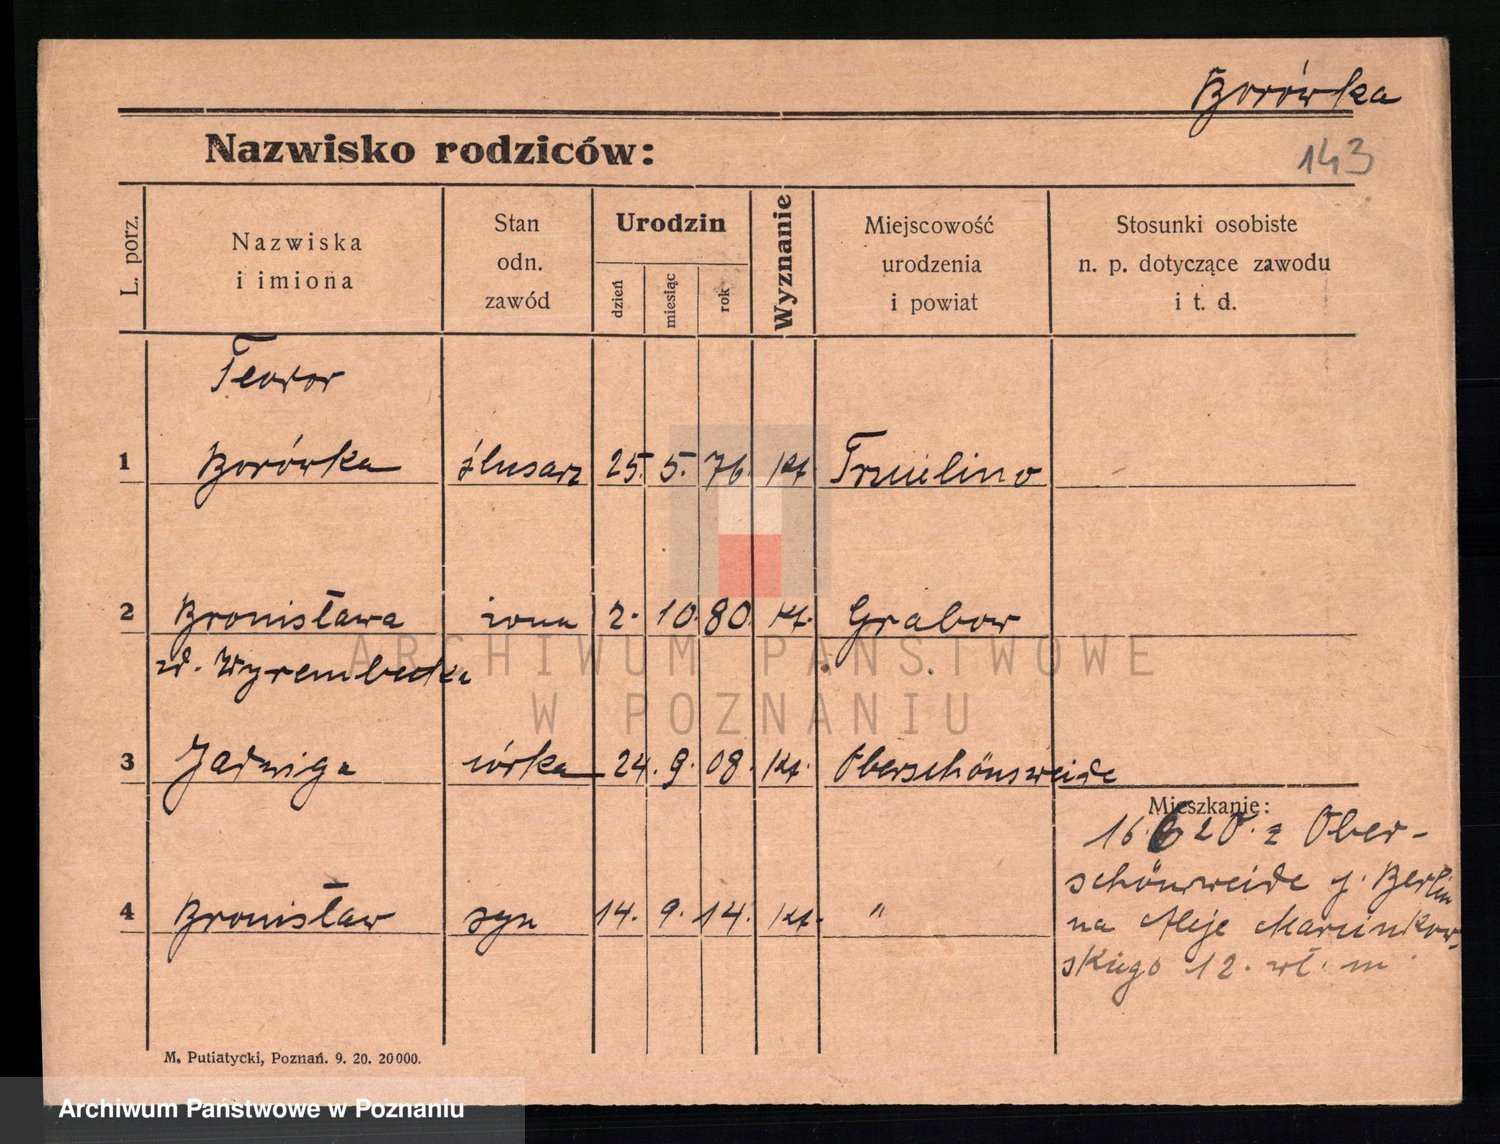 Borówka
Nazwisko rodziców:
143
L. porz.
Nazwiska
i imiona
Stan
odn.
zawód
Urodzin
dzień
miesiąc
rok
Wyznanie
Miejscowość
urodzenia
i powiat
Stosunki osobiste
n. p. dotyczące zawodu
i t. d.
Teodor
1 Borówka ślusarz 25. 5. 76. kt. Trzuelino
2 Bronisława żona 2. 10. 80. kt. Grabow
zd. Wyrembecka
3 Jadwiga córka 24. 9. 08. kt. Oberschönsweide
Mieszkanie:
16. 6 20. z Ober-
schönweide p. Berlin
4 Bronisław syn 14. 9. 14. kt. "
na Aleje Marcinkow-
skiego 12. wł. m
M. Putiatycki, Poznań. 9. 20. 20000.
ARCHIWUM PAŃSTWOWE
W POZNANIU
Archiwum Państwowe w Poznaniu